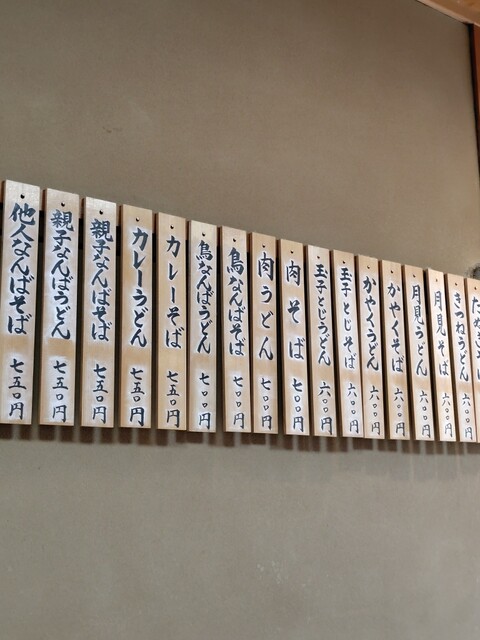 きつねうどん 六〇〇円
月見そば 六〇〇円
月見うどん 六〇〇円
かやくそば 六〇〇円
かやくうどん 六〇〇円
玉子とじそば 六〇〇円
玉子とじうどん 六〇〇円
肉そば 七〇〇円
肉うどん 七〇〇円
鳥なんばそば 七〇〇円
鳥なんばうどん 七〇〇円
カレーそば 七五〇円
カレーうどん 七五〇円
親子なんばそば 七五〇円
親子なんばうどん 七五〇円
他人なんばそば 七五〇円